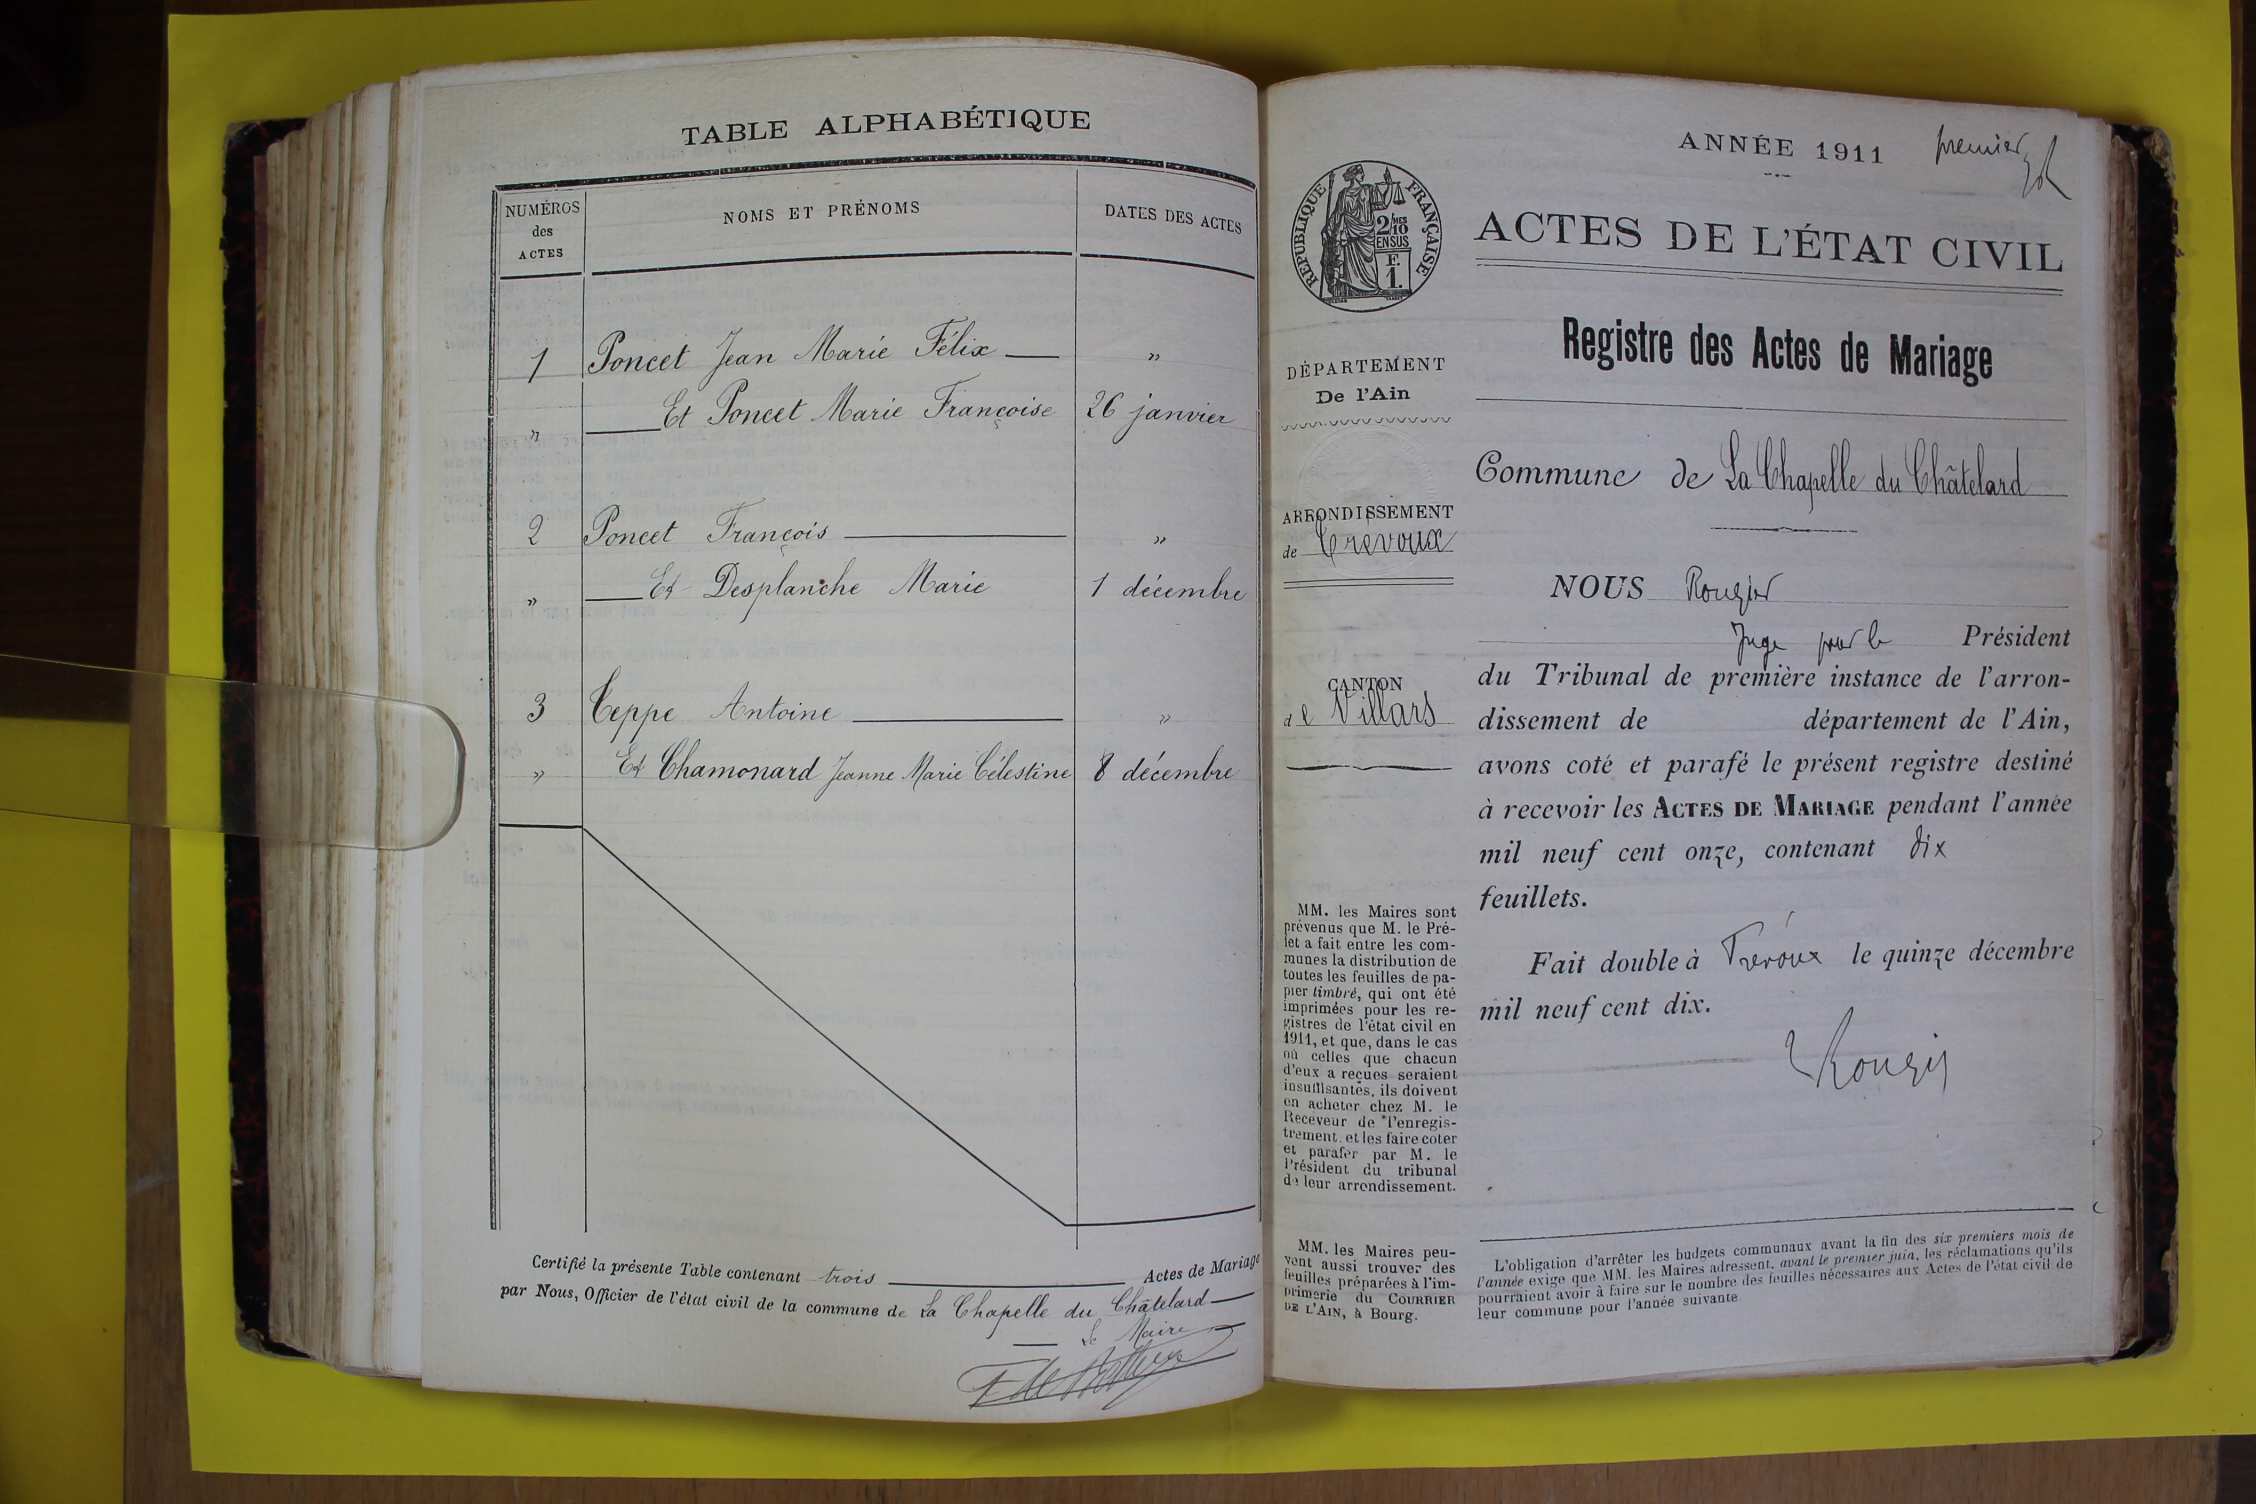 TABLE ALPHABÉTIQUE
NUMÉROS des ACTES
NOMS ET PRÉNOMS
DATES DES ACTES
1 Poncet Jean Marie Félix — "
" — Et Poncet Marie Françoise 26 janvier
2 Poncet François — "
" — Et Desplanche Marie 1 décembre
3 Teppe Antoine — "
" Et Chamonard Jeanne Marie Célestine 8 décembre
Certifié la présente Table contenant trois — Actes de Mariage
par Nous, Officier de l'état civil de la commune de La Chapelle du Châtelard —
— Le Maire —
ANNÉE 1911
premier
RÉPUBLIQUE FRANÇAISE
2/10 MES
EN SUS
F.
1.
ACTES DE L'ÉTAT CIVIL
Registre des Actes de Mariage
DÉPARTEMENT
De l'Ain
ARRONDISSEMENT
de Trévoux
CANTON
de Villars
MM. les Maires sont
prévenus que M. le Pré-
fet a fait entre les com-
munes la distribution de
toutes les feuilles de pa-
pier timbré, qui ont été
imprimées pour les re-
gistres de l'état civil en
1911, et que, dans le cas
où celles que chacun
d'eux a reçues seraient
insuffisantes, ils doivent
en acheter chez M. le
Receveur de l'enregis-
trement, et les faire coter
et parafer par M. le
Président du tribunal
de leur arrondissement.
MM. les Maires peu-
vent aussi trouver des
feuilles préparées à l'im-
primerie du COURRIER
DE L'AIN, à Bourg.
Commune de La Chapelle du Châtelard
NOUS Rougier
Juge pour le Président
du Tribunal de première instance de l'arron-
dissement de département de l'Ain,
avons coté et parafé le présent registre destiné
à recevoir les ACTES DE MARIAGE pendant l'année
mil neuf cent onze, contenant dix
feuillets.
Fait double à Trévoux le quinze décembre
mil neuf cent dix.
Rougier
L'obligation d'arrêter les budgets communaux avant la fin des six premiers mois de
l'année exige que MM. les Maires adressent, avant le premier juin, les réclamations qu'ils
pourraient avoir à faire sur le nombre des feuilles nécessaires aux Actes de l'état civil de
leur commune pour l'année suivante